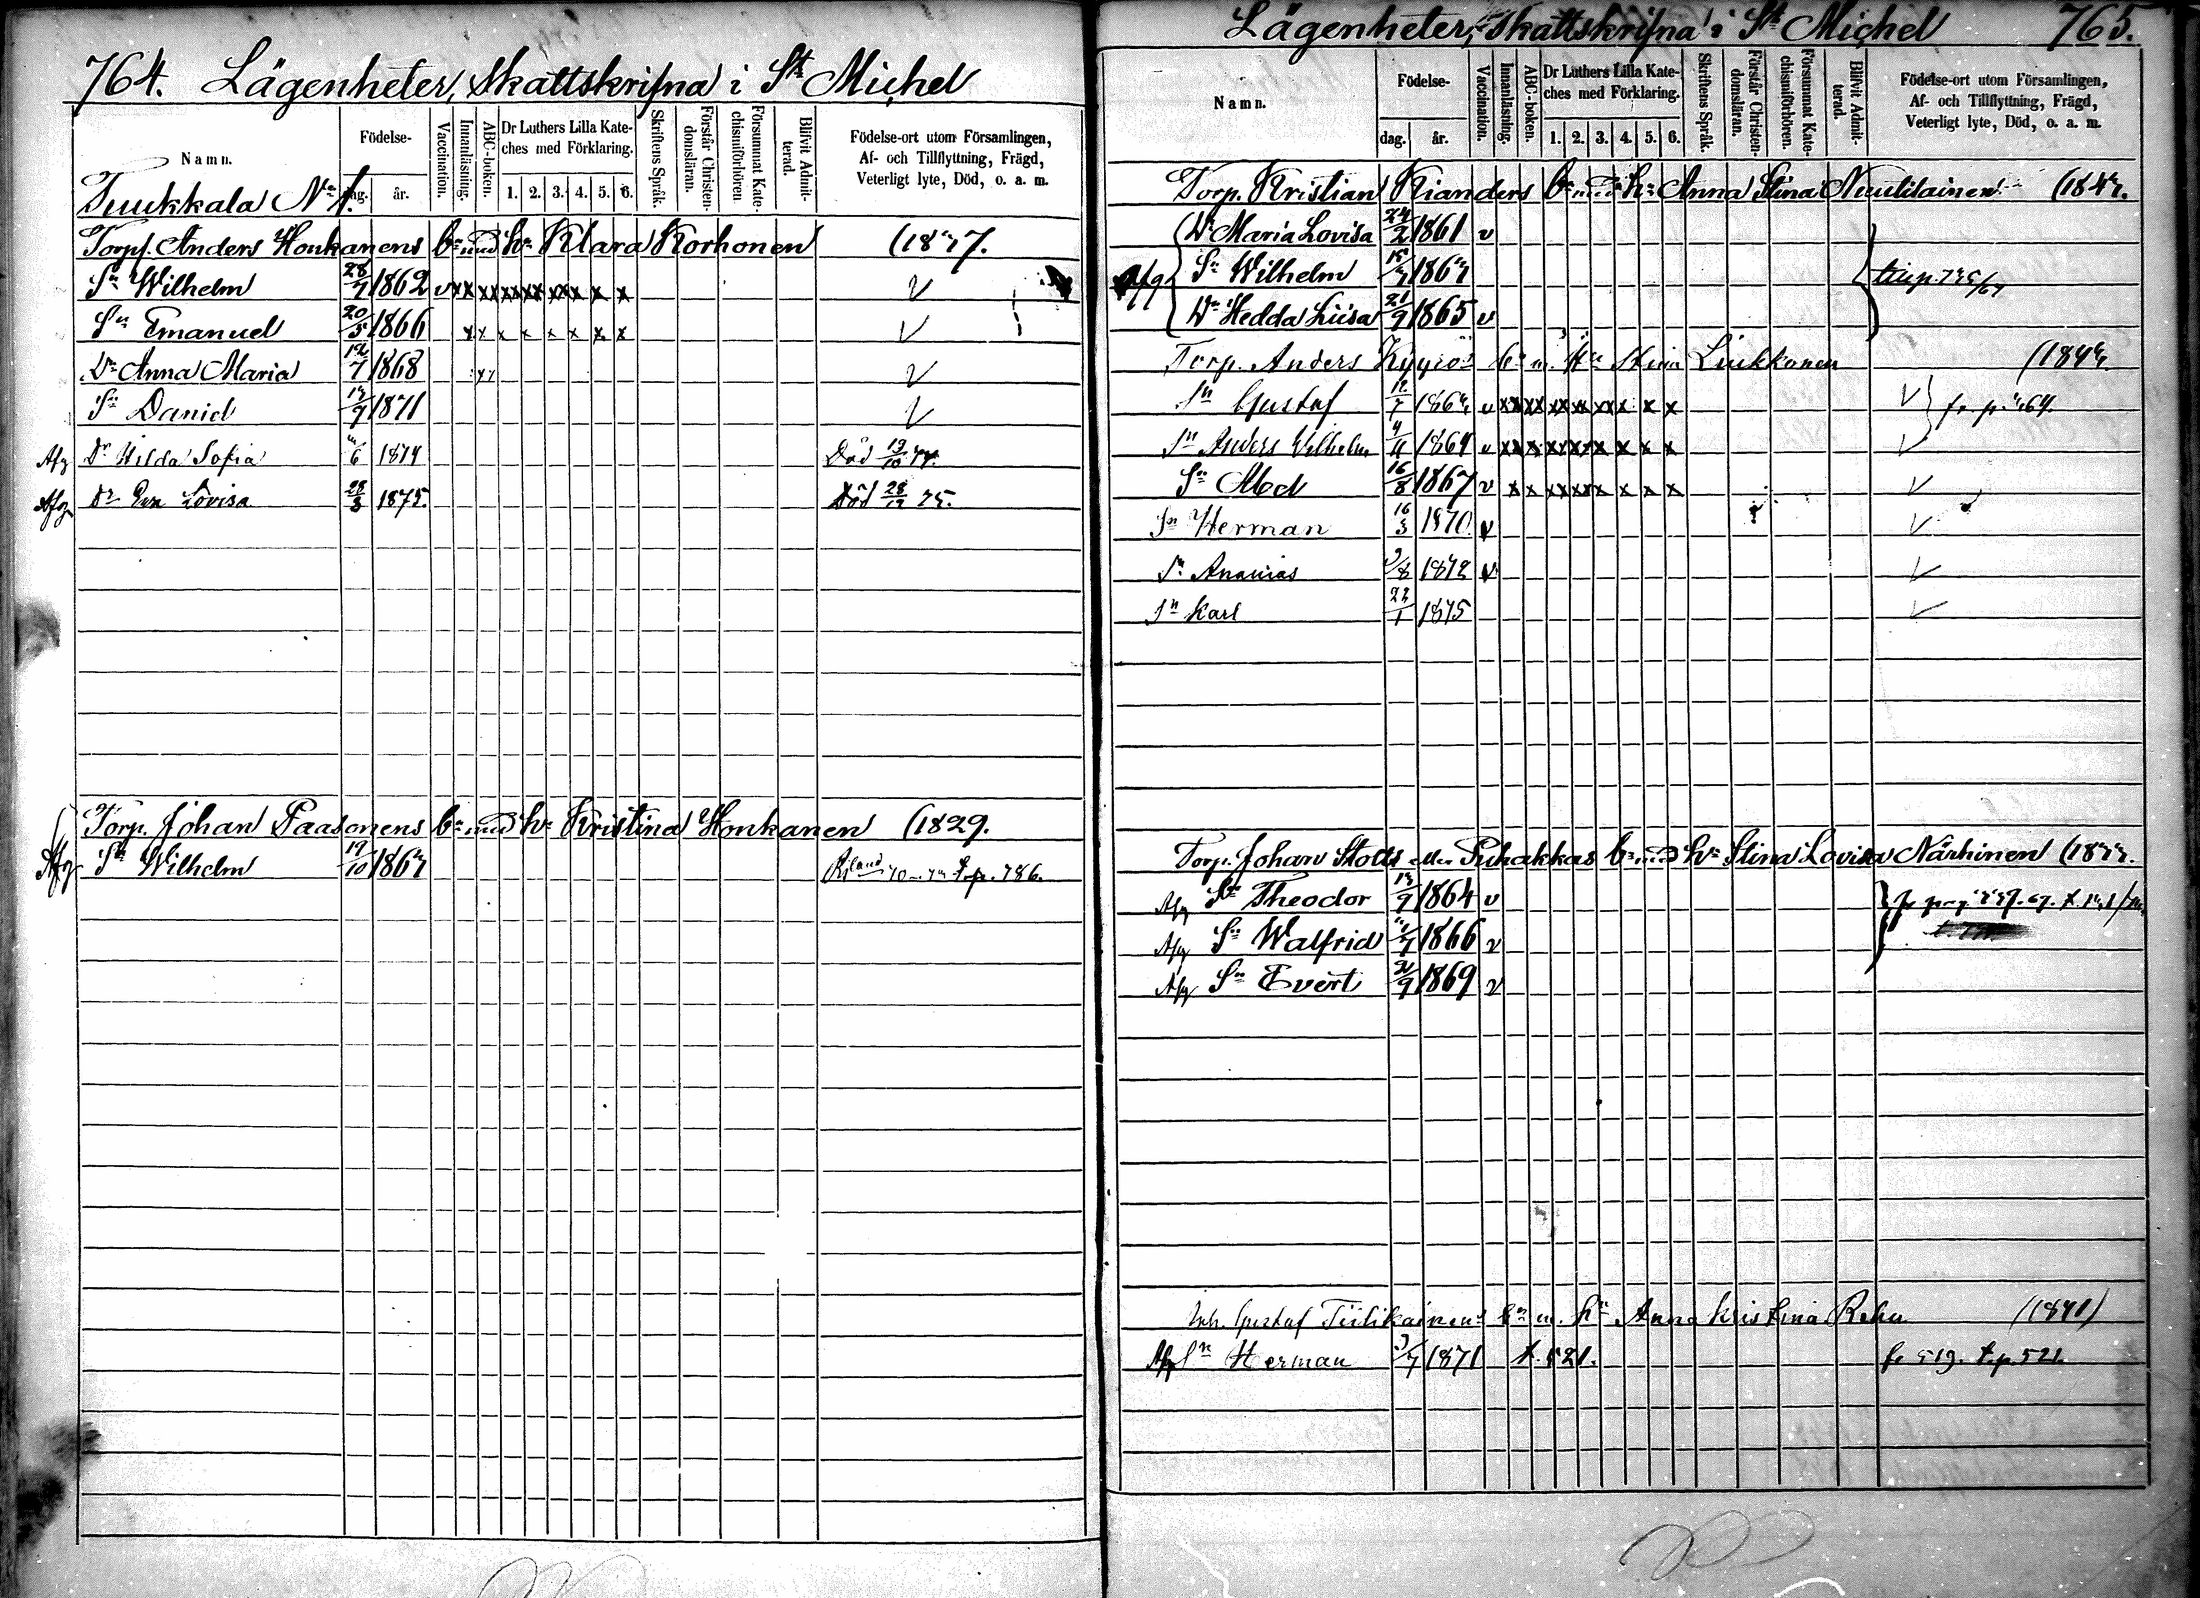 764. Lägenheter, skattskrifna i St Michel
Namn.
Födelse-
dag.
år.
Vaccination.
Innanläsning.
ABC-boken.
Dr Luthers Lilla Kate-
ches med Förklaring.
1. 2. 3. 4. 5. 6.
Skriftens Språk.
Förstår Christen-
domsläran.
Försummat Kate-
chismiförhören
Blifvit Admit-
terad.
Födelse-ort utom Församlingen,
Af- och Tillflyttning, Frägd,
Veterligt lyte, Död, o. a. m.
Tuukkala No 1.
Torp. Anders Honkanens bn med hu Klara Korhonen
Sn Wilhelm 28/7 1862 v xx xx xx xx xx x x x v
Sn Emanuel 20/5 1866 xx x x x x x x v
Dr Anna Maria 12/7 1868 v
Sn Daniel 1871 v
Afg Dr Hilda Sofia 1874 Död
Afg Dr Eva Lovisa 28/3 1875. Död 28/12 75.
Torp. Johan Paasonens bn med hu Kristina Honkanen (1829.
Afg Sn Wilhelm 19/10 t.p. 786.
Lägenheter, skattskrifna i St Michel 765.
Namn.
Födelse-
dag.
år.
Vaccination.
Innanläsning.
ABC-boken.
Dr Luthers Lilla Kate-
ches med Förklaring.
1. 2. 3. 4. 5. 6.
Skriftens Språk.
Förstår Christen-
domsläran.
Försummat Kate-
chismiförhören.
Blifvit Admit-
terad.
Födelse-ort utom Församlingen,
Af- och Tillflyttning, Frägd,
Veterligt lyte, Död, o. a. m.
Torp. Kristian Kianders bn med hu Anna Stina Nuutilainen
Dr Maria Lovisa 24/2 1861 v
Afg Sn Wilhelm
Dr Hedda Liisa 21/9 1865 v
Torp. Anders Kyyrös bn m. hu Stina Liukkonen
Sn Gustaf 12/7 v xx xx xx xx xx x x x v
Sn Anders Wilhelm v xx xx xx xx x x x x v
Sn Abel 16/8 1867 v x x xx xx x x x x v
Sn Herman 16/3 1870 v v
Sn Ananias 1872 v v
Sn Karl 22/1 1875 v
Torp. Johan Stolts eller Puhakkas bn med hu Stina Lovisa Närhinen
Afg Sn Theodor 1864 v
Afg Sn Walfrid 1866 v
Afg Sn Evert 1869 v
Inh. Gustaf Tiilikainens bn m. hu Anna Kristina Rehu (1841)
Afg Sn Herman 1871 t. 521. fr 519. t.p. 521.